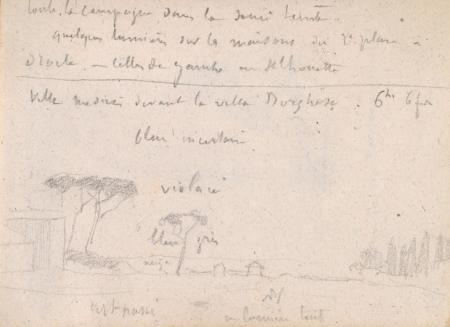 toute la campagne dans la demi teinte.
quelques lumières sur la maisons du 2e plan à
droite. — celles de gauche en silhouette
Villa medicis devant la villa Borghèse. 6hs 6 fev
bleu incertain.
violacé
bleu gris
neige
en lumière tout